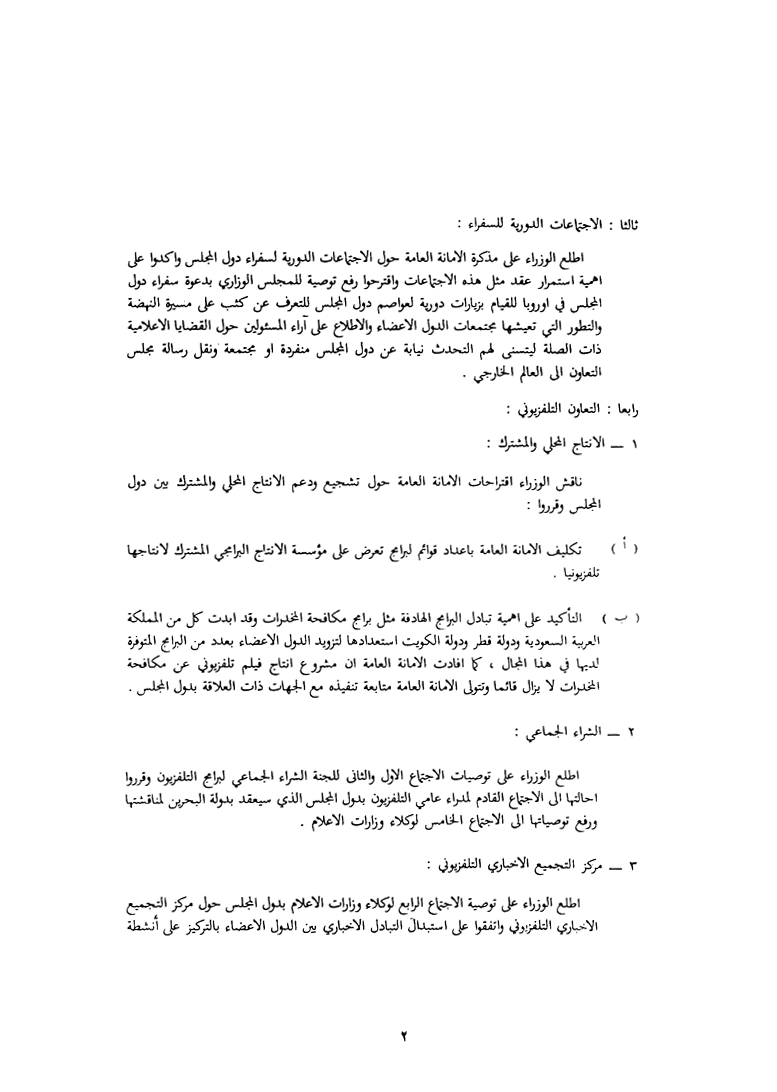 ثالثا : الاجتماعات الدورية للسفراء :
اطلع الوزراء على مذكرة الامانة العامة حول الاجتماعات الدورية لسفراء دول المجلس واكدوا على
اهمية استمرار عقد مثل هذه الاجتماعات واقترحوا رفع توصية للمجلس الوزاري بدعوة سفراء دول
المجلس في اوروبا للقيام بزيارات دورية لعواصم دول المجلس للتعرف عن كثب على مسيرة النهضة
والتطور التي تعيشها مجتمعات الدول الاعضاء والاطلاع على آراء المسئولين حول القضايا الاعلامية
ذات الصلة ليتسنى لهم التحدث نيابة عن دول المجلس منفردة او مجتمعة ونقل رسالة مجلس
التعاون الى العالم الخارجي .
رابعا : التعاون التلفزيوني :
١ ــ الانتاج المحلي والمشترك :
ناقش الوزراء اقتراحات الامانة العامة حول تشجيع ودعم الانتاج المحلي والمشترك بين دول
المجلس وقرروا :
( أ ) تكليف الامانة العامة باعداد قوائم لبرامج تعرض على مؤسسة الانتاج البرامجي المشترك لانتاجها
تلفزيونيا .
( ب ) التأكيد على اهمية تبادل البرامج الهادفة مثل برامج مكافحة المخدرات وقد ابدت كل من المملكة
العربية السعودية ودولة قطر ودولة الكويت استعدادها لتزويد الدول الاعضاء بعدد من البرامج المتوفرة
لديها في هذا المجال ، كما افادت الامانة العامة ان مشروع انتاج فيلم تلفزيوني عن مكافحة
المخدرات لا يزال قائما وتتولى الامانة العامة متابعة تنفيذه مع الجهات ذات العلاقة بدول المجلس .
٢ ــ الشراء الجماعي :
اطلع الوزراء على توصيات الاجتماع الاول والثانى للجنة الشراء الجماعي لبرامج التلفزيون وقرروا
احالتها الى الاجتماع القادم لمدراء عامي التلفزيون بدول المجلس الذي سيعقد بدولة البحرين لمناقشتها
ورفع توصياتها الى الاجتماع الخامس لوكلاء وزارات الاعلام .
٣ ــ مركز التجميع الاخباري التلفزيوني :
اطلع الوزراء على توصية الاجتماع الرابع لوكلاء وزارات الاعلام بدول المجلس حول مركز التجميع
الاخباري التلفزيوني واتفقوا على استبدال التبادل الاخباري بين الدول الاعضاء بالتركيز على أنشطة
٢